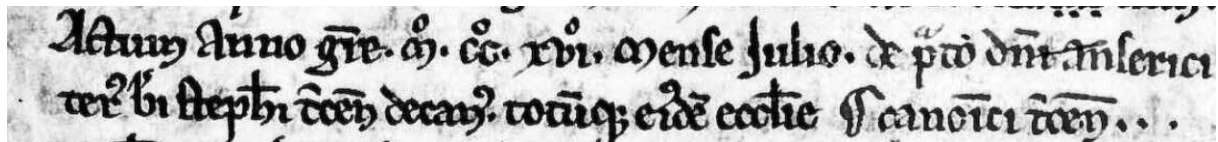 Actum Anno grͣe. mͦ. ccͦ. xvͦi. Mense Julio. de pͣto dn̄i Anserici
terˀ bͥi steph̄i t̄cen̄ decanˀ. totūqꝫ eiˀdē eccl̄ie ¶ canoīci t̄cen̄ . . .